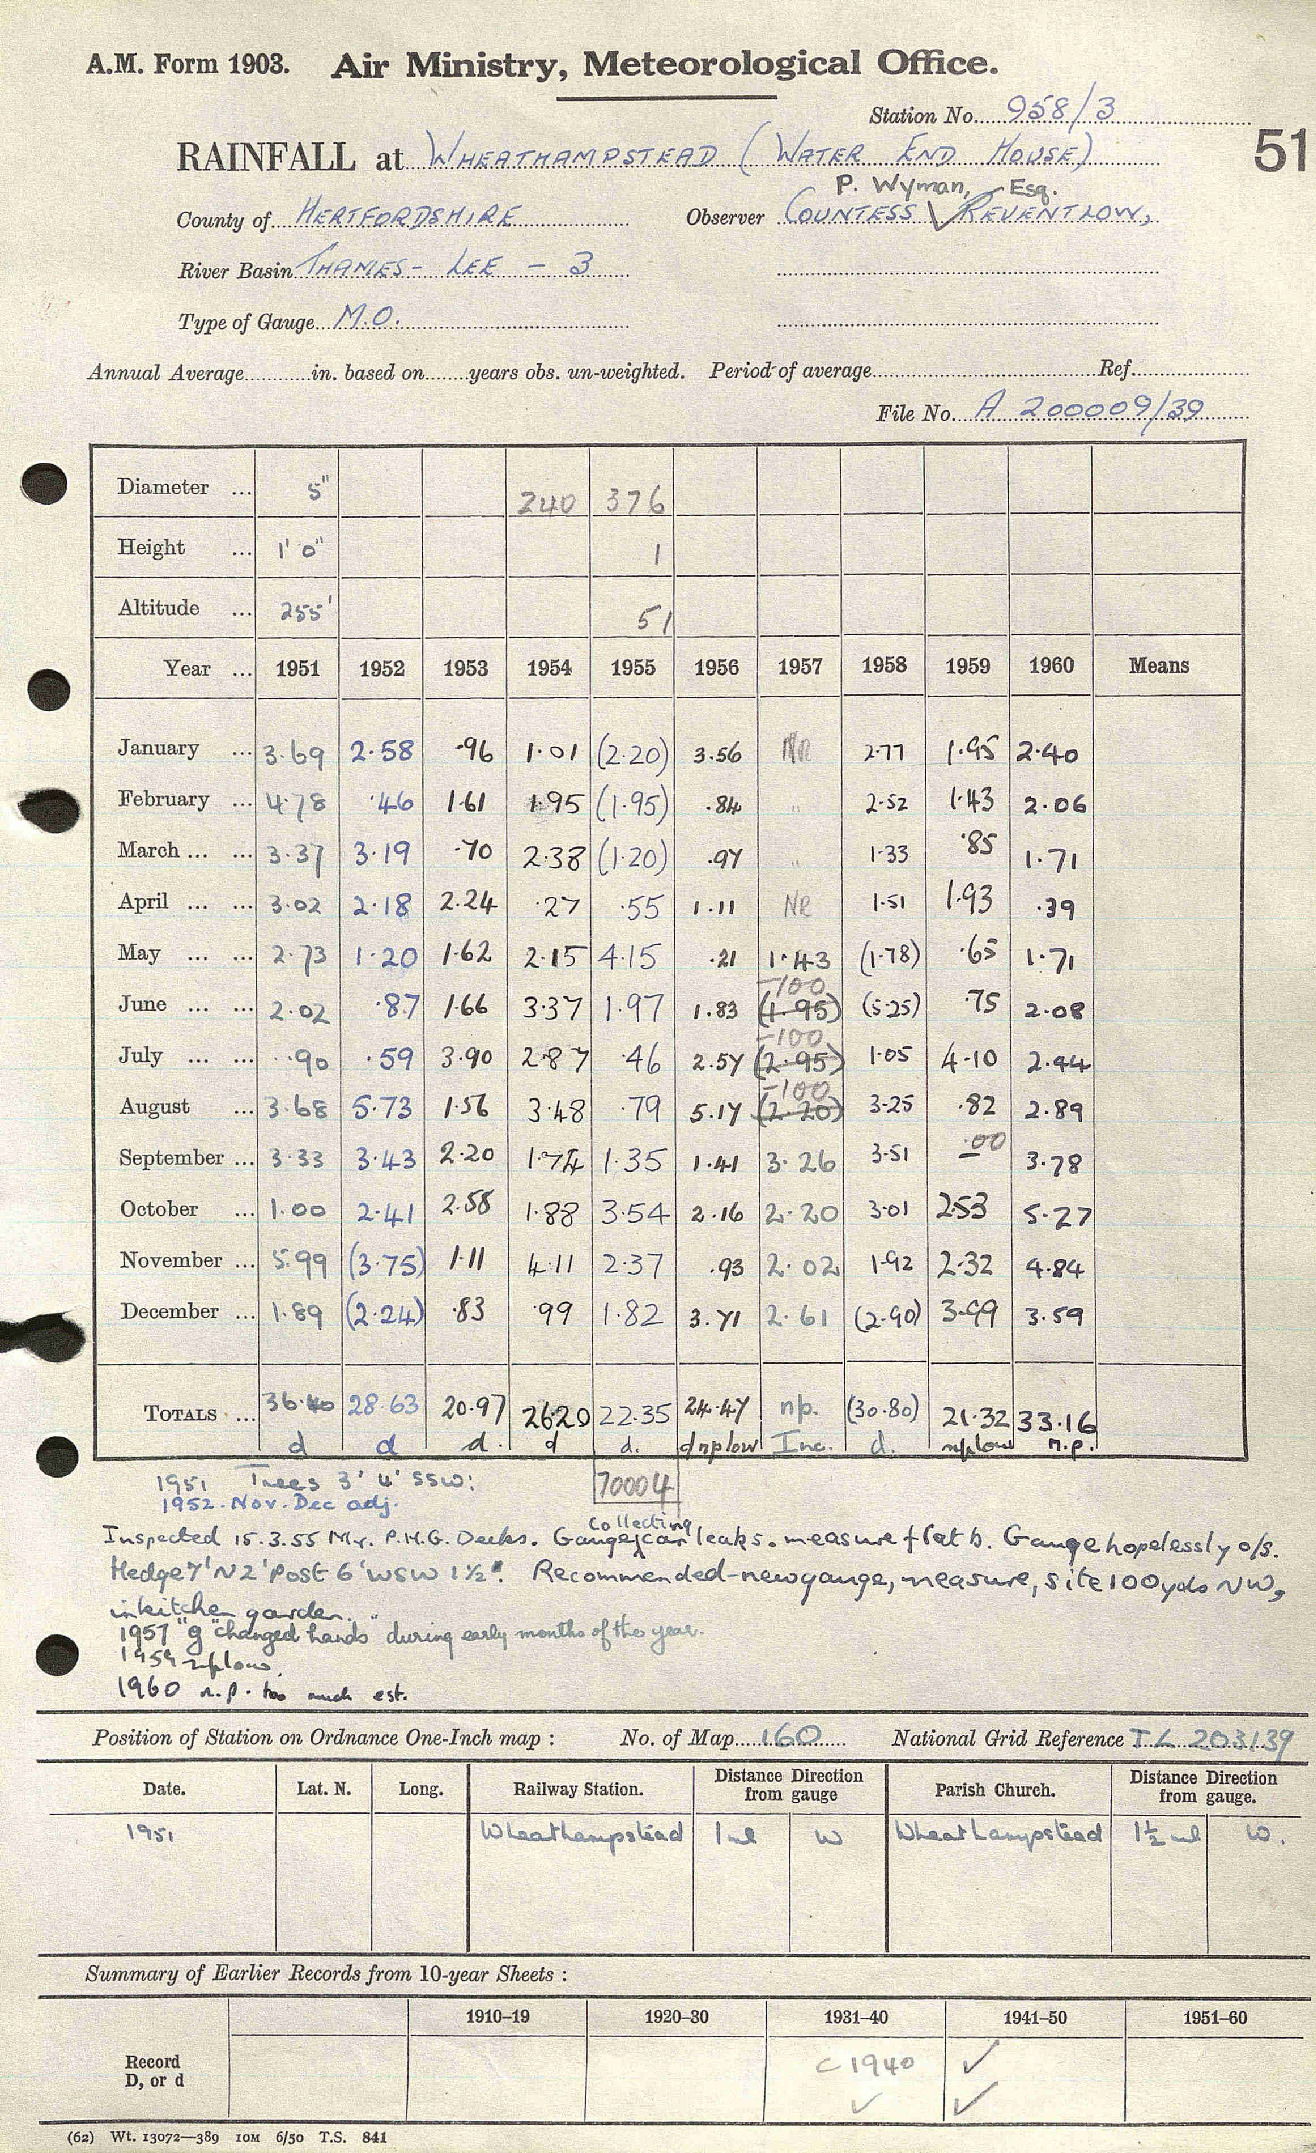 A.M. Form 1903. Air Ministry, Meteorological Office.
Station No. 958/3
RAINFALL at WHEATHAMPSTEAD (WATER END HOUSE)
51
P. Wyman, Esq.
County of HERTFORDSHIRE Observer COUNTESS REVENTLOW,
River Basin THAMES - LEE - 3
Type of Gauge M.O.
Annual Average in. based on years obs. un-weighted. Period of average Ref.
File No. A 200009/39
Diameter ... 5" 240 376
Height ... 1' 0" 1
Altitude ... 255' 51
Year ... 1951 1952 1953 1954 1955 1956 1957 1958 1959 1960 Means
January ... 3.69 2.58 .96 1.01 (2.20) 3.56 NR 2.77 1.95 2.40
February ... 4.78 .46 1.61 1.95 (1.95) .84 " 2.52 1.43 2.06
March ... ... 3.37 3.19 .70 2.38 (1.20) .97 " 1.33 .85 1.71
April ... ... 3.02 2.18 2.24 .27 .55 1.11 NR 1.51 1.93 .39
May ... ... 2.73 1.20 1.62 2.15 4.15 .21 1.43 (1.78) .65 1.71
-100
June ... ... 2.02 .87 1.66 3.37 1.97 1.83 (1.95) (5.25) .75 2.08
-100
July ... ... .90 .59 3.90 2.87 .46 2.57 (2.95) 1.05 4.10 2.44
-100
August ... 3.68 5.73 1.56 3.48 .79 5.17 (2.20) 3.25 .82 2.89
September ... 3.33 3.43 2.20 1.74 1.35 1.41 3.26 3.51 .00 3.78
October ... 1.00 2.41 2.55 1.88 3.54 2.16 2.20 3.01 2.53 5.27
November ... 5.99 (3.75) 1.11 4.11 2.37 .93 2.02 1.92 2.32 4.84
December ... 1.89 (2.24) .83 .99 1.82 3.71 2.61 (2.90) 3.99 3.59
TOTALS ... 36.40 28.63 20.97 26.20 22.35 24.47 n.p. (30.80) 21.32 33.16
d d d. d d. d nplow Inc. d. nplow n.p.
1951 Trees 3' 4' SSW: 70004
1952. Nov. Dec adj.
Collecting
Inspected 15.3.55 Mr. P.H.G. Deeks. Gauge, can leaks. measure flat b. Gauge hopelessly o/s.
Hedge 7' N 2' Post 6' WSW 1½". Recommended - new gauge, measure, site 100yds NW,
in kitchen garden.
1957 "g" changed hands during early months of the year.
1959 nplow.
1960 n.p. too much est.
Position of Station on Ordnance One-Inch map : No. of Map 160 National Grid Reference TL 203139
Date. Lat. N. Long. Railway Station. Distance Direction from gauge Parish Church. Distance Direction from gauge.
1951 Wheathampstead 1 ml W Wheathampstead 1½ ml W.
Summary of Earlier Records from 10-year Sheets :
1910–19 1920–30 1931–40 1941–50 1951–60
Record
D, or d
c 1940 ✓
✓ ✓
(62) Wt. 13072—389 10M 6/50 T.S. 841